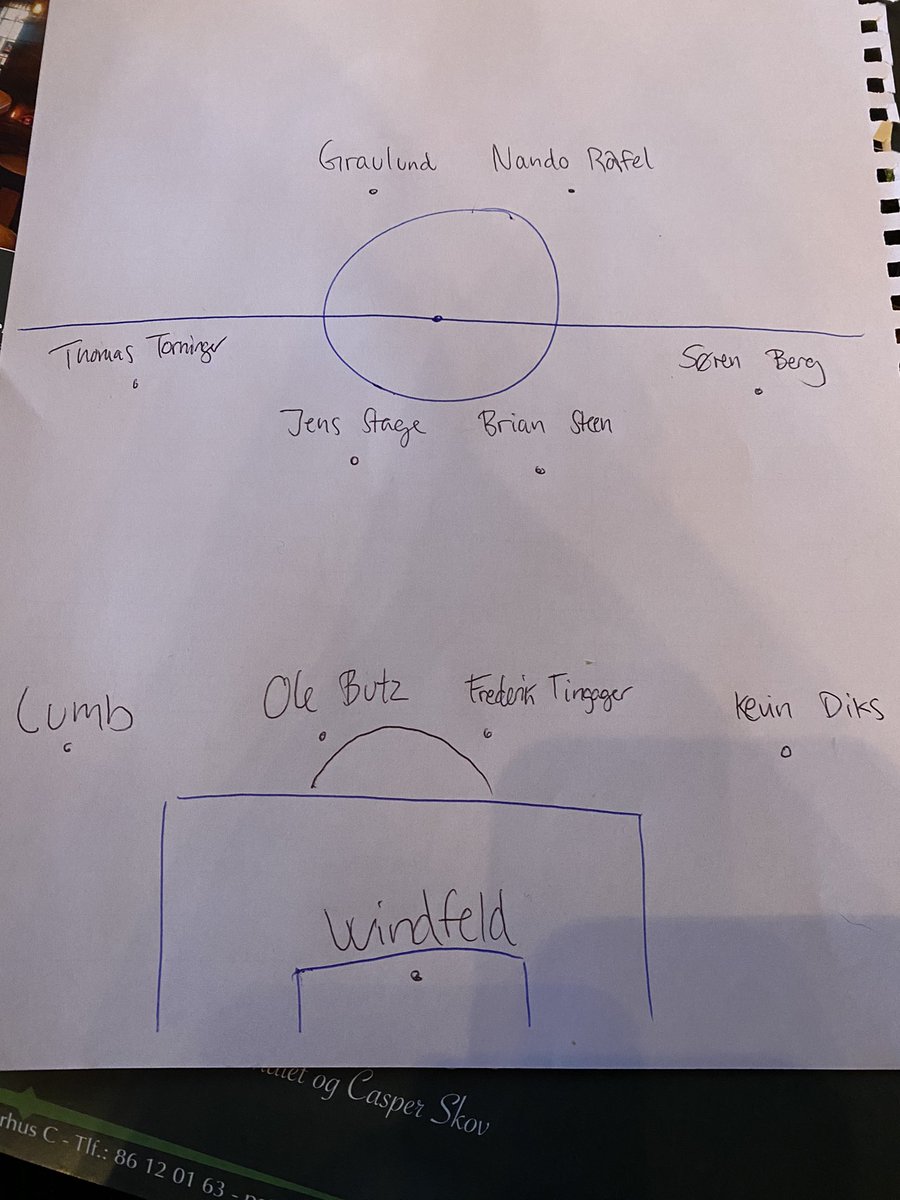 Graulund Nando Rafel
Thomas Torninger
Søren Berg
Jens Stage Brian Steen
Lumb Ole Butz Frederik Tingager Kevin Diks
Windfeld
og Casper Skov
rhus C - Tlf.: 86 12 01 63 -